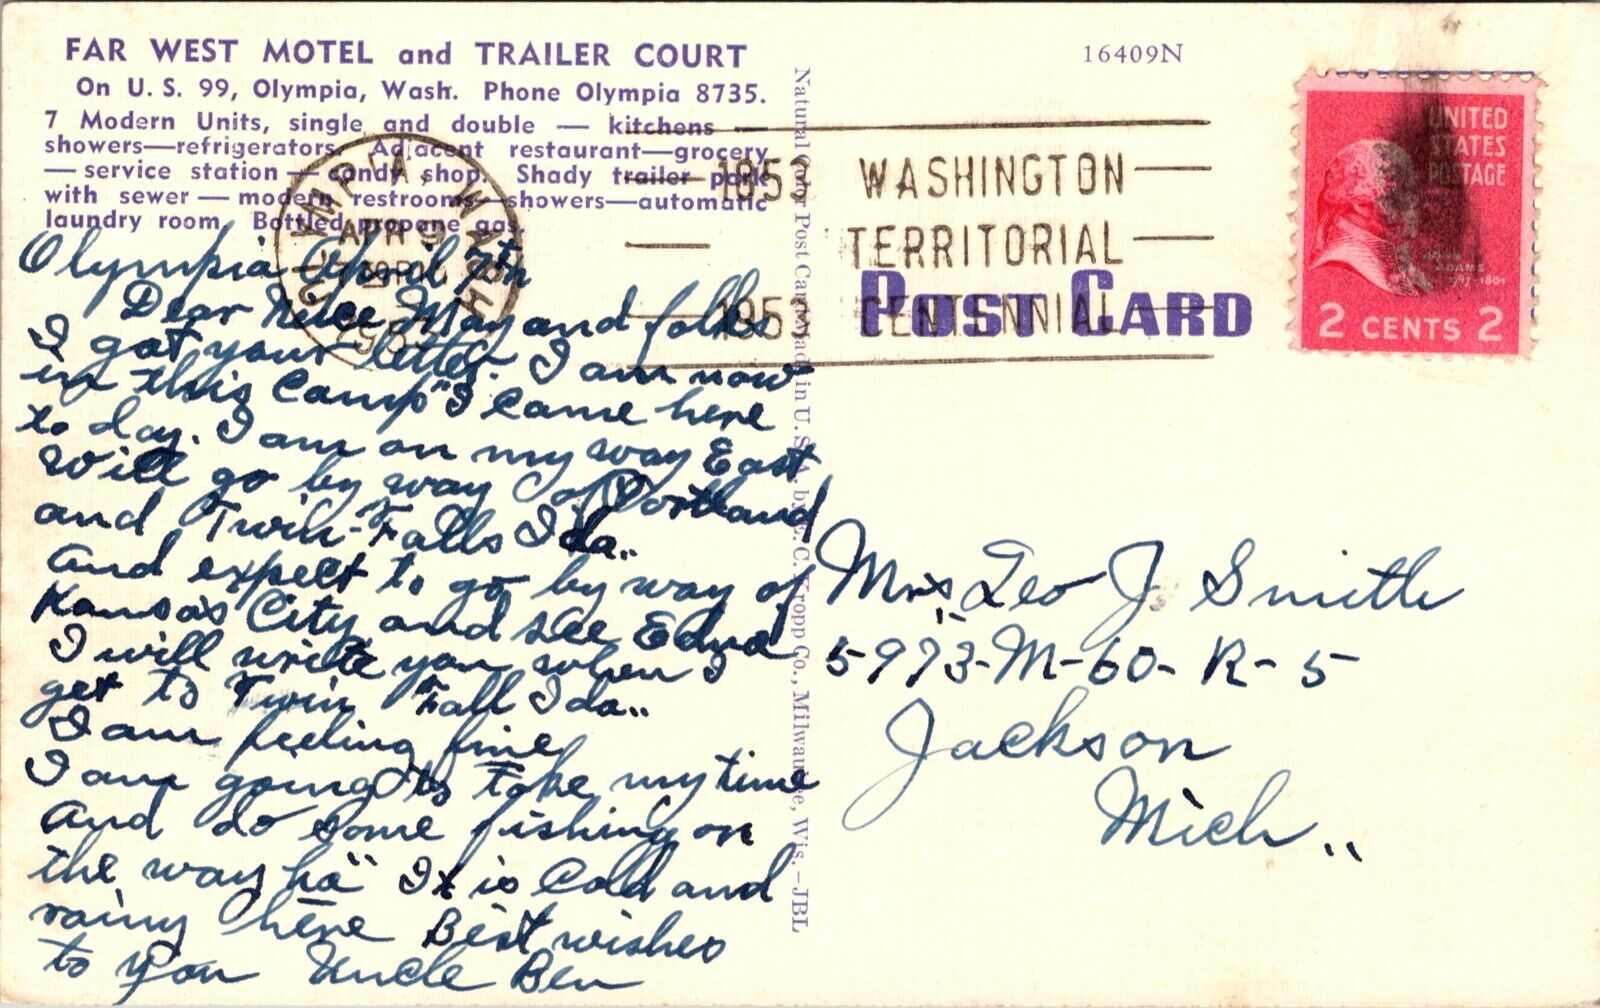 FAR WEST MOTEL and TRAILER COURT
On U. S. 99, Olympia, Wash. Phone Olympia 8735.
7 Modern Units, single and double — kitchens —
showers—refrigerators. Adjacent restaurant—grocery
— service station — candy shop. Shady trailer park
with sewer — modern restrooms—showers—automatic
laundry room. Bottled propane gas.
Olympia April 7th
Dear Neice May and folks
I got your letter. I am now
in this Camp" I came here
to day. I am on my way East
Will go by way of Portland
and Twin-Falls Ida..
And expect to go by way of
Kansas City and see Edna
I will write you when I
get to Twin Fall Ida..
I am feeling fine
I am going to take my time
And do some fishing on
the way ha" It is Cold and
rainy here Best wishes
to you Uncle Ben
Natural Color Post Card Made in U. S. A. by E. C. Kropp Co., Milwaukee, Wis. –JBL
16409N
OLYMPIA, WASH.
APR
1953
1853 WASHINGTON
TERRITORIAL
1953 CENTENNIAL
POST CARD
UNITED
STATES
POSTAGE
JOHN
ADAMS
1797-1801
2 CENTS 2
Mrs Leo J Smith
5973-M-60-R-5
Jackson
Mich..